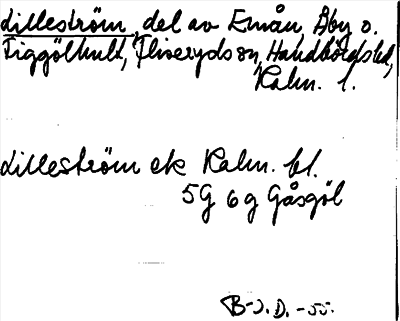 Lilleström, del av Emån, Åby o.
Tiggölhult, Fliseryds sn, Handbörds hd,
Kalm. l.
Lilleström ek Kalm. bl.
5G 6g Gåsgöl
B-J. D. -55.